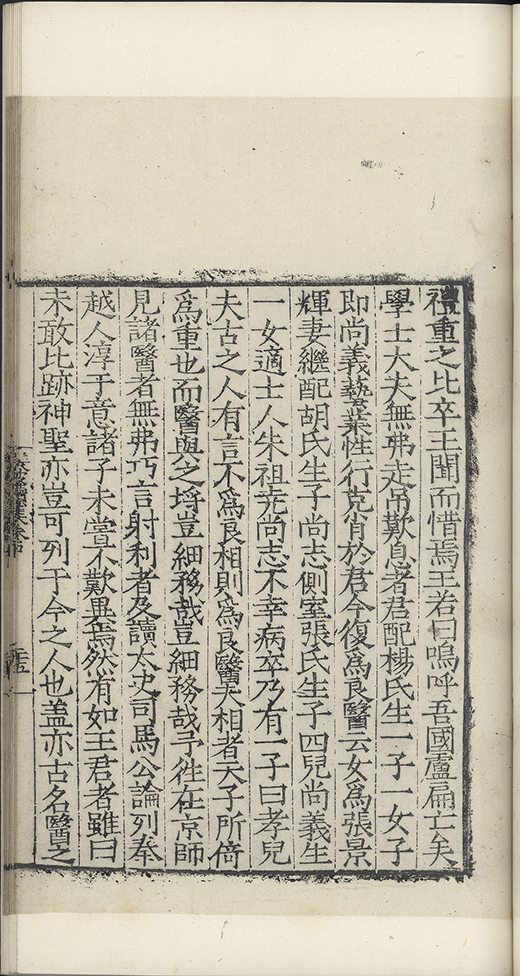 禮重之比卒王聞而惜焉王若曰嗚呼吾國盧扁亡矣
學士大夫無弗走吊歎息者君配楊氏生一子一女子
即尚義藝業性行克肖於君今復爲良醫云女爲張景
輝妻繼配胡氏生子尚志側室張氏生子四兒尚義生
一女適士人朱祖堯尚志不幸病卒乃有一子曰孝兒
夫古之人有言不爲良相則爲良醫夫相者天子所倚
爲重也而醫與之埒豈細務哉豈細務哉予徃在京師
見諸醫者無弗巧言射利者及讀太史司馬公論列秦
越人淳于意諸子未嘗不歎異焉然有如王君者雖曰
未敢比跡神聖亦豈可列于今之人也盖亦古名醫之